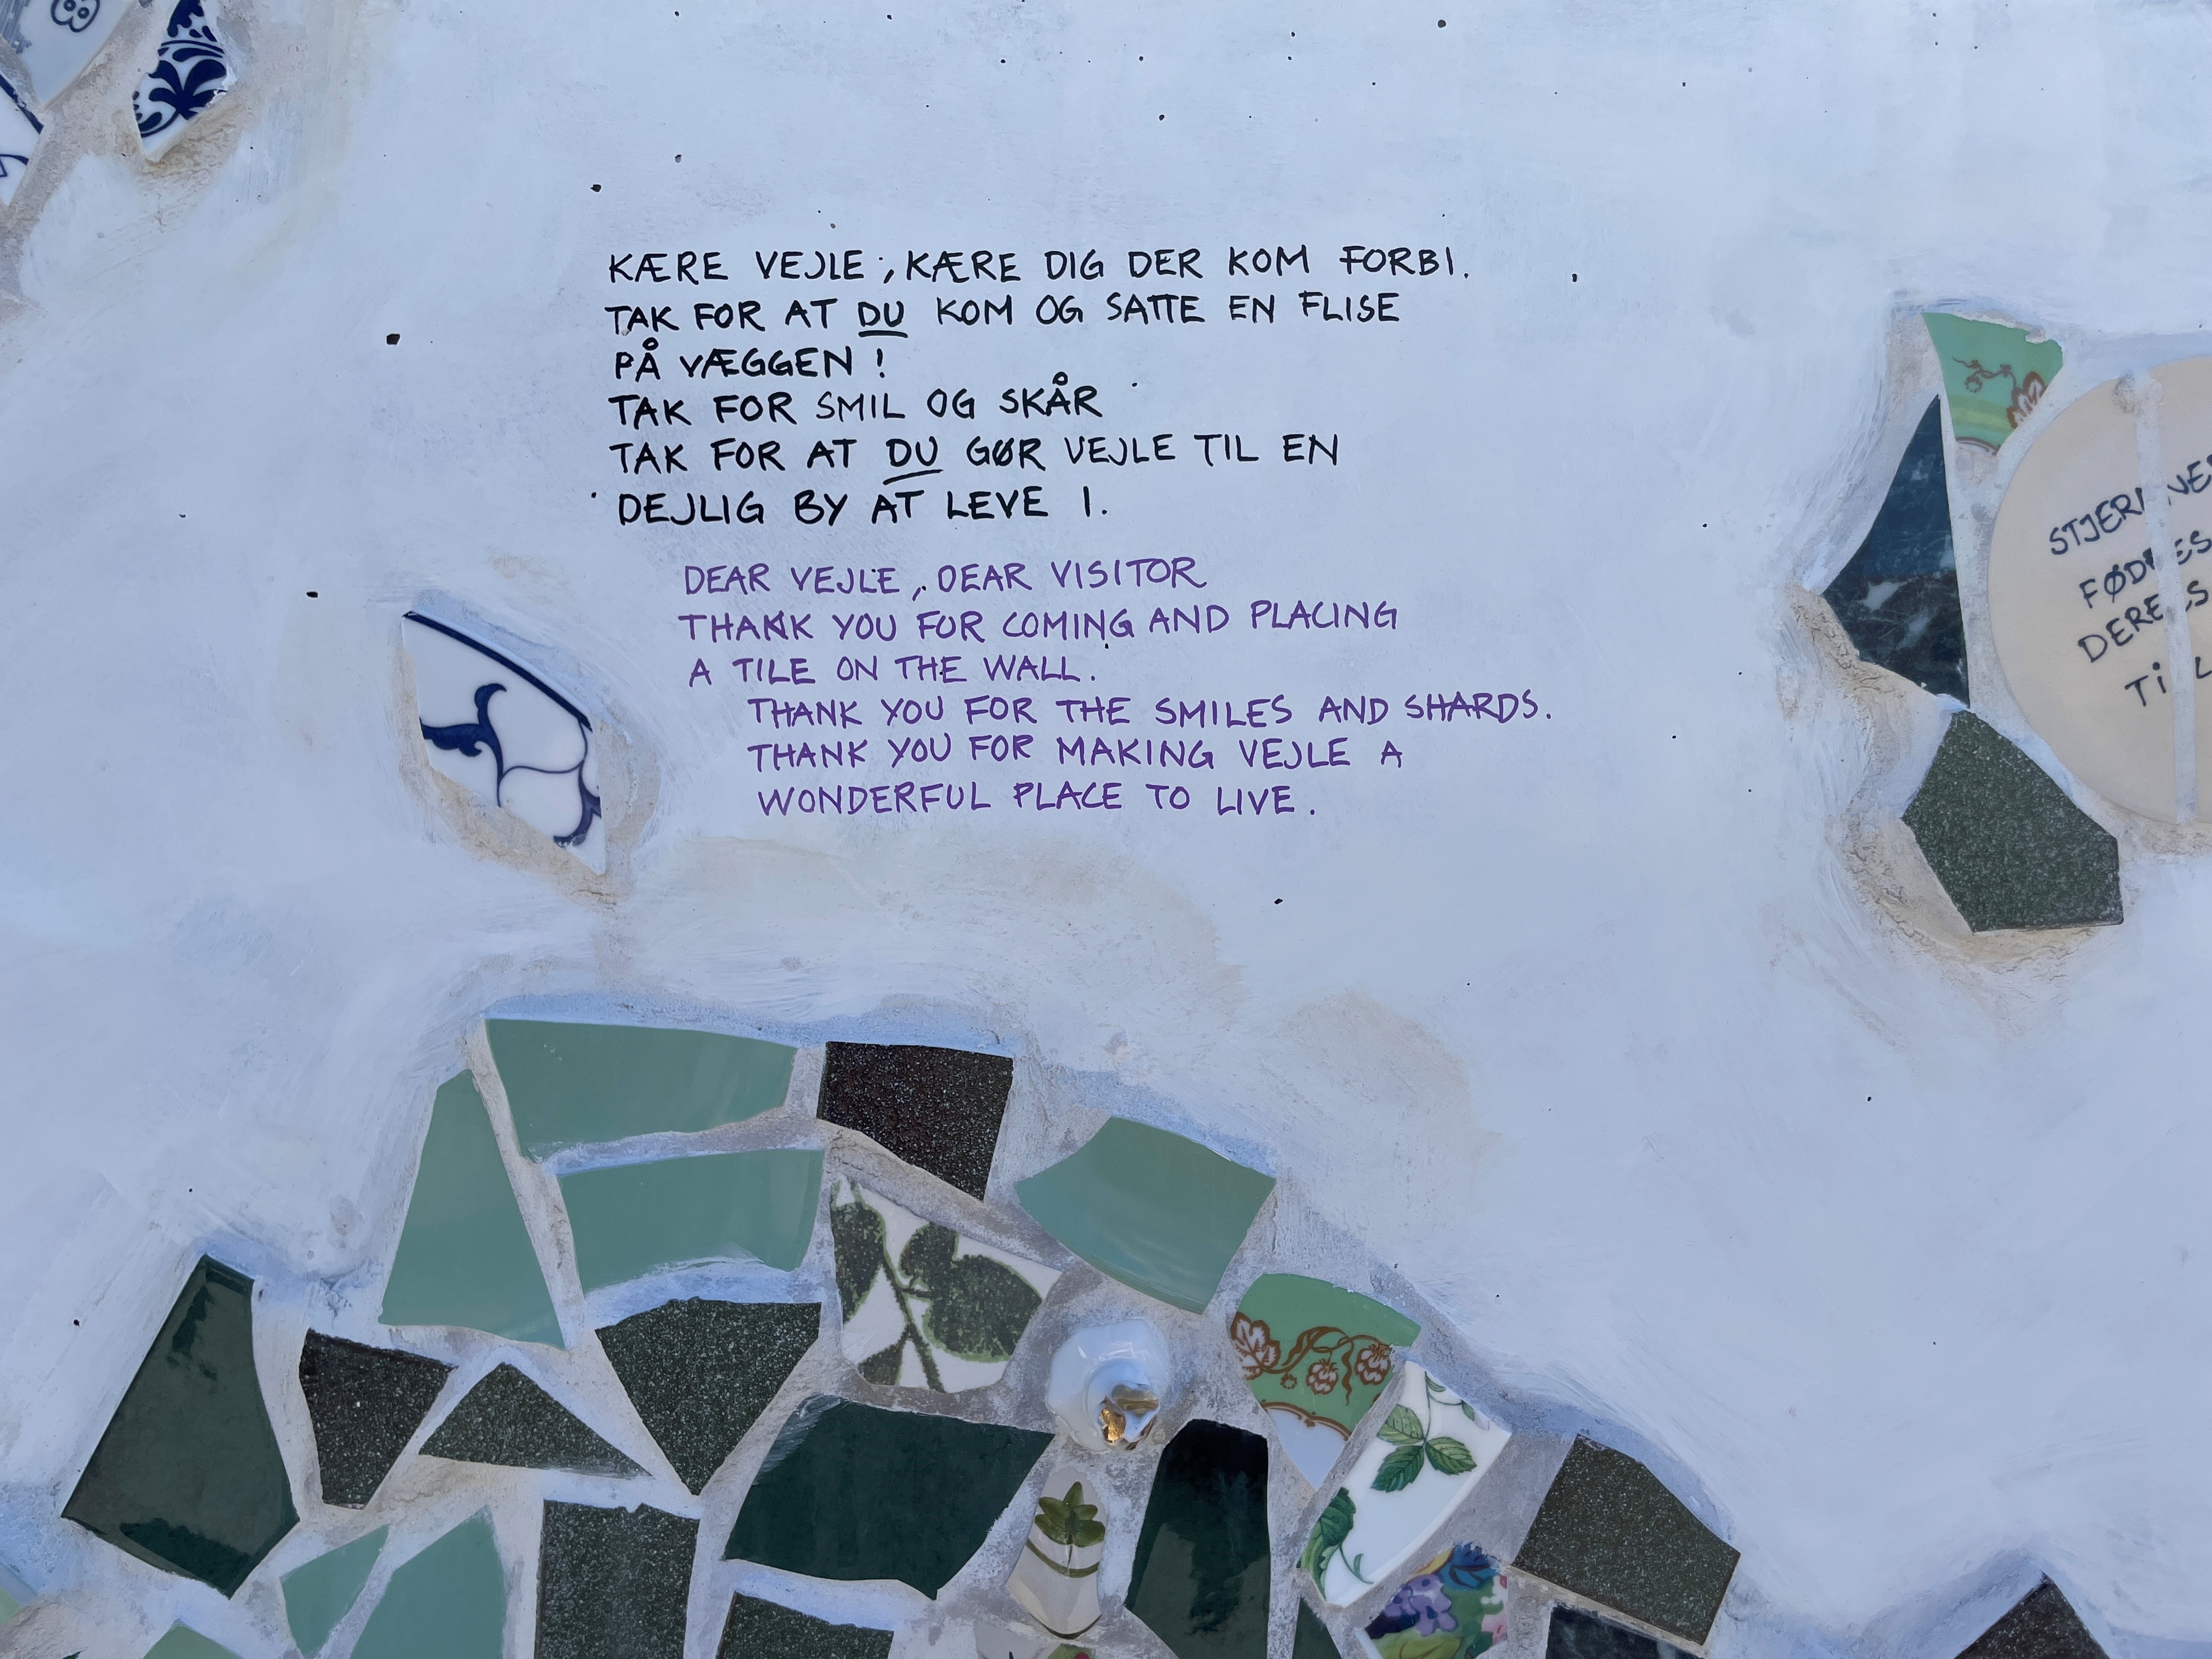 KÆRE VEJLE, KÆRE DIG DER KOM FORBI.
TAK FOR AT DU KOM OG SATTE EN FLISE
PÅ VÆGGEN!
TAK FOR SMIL OG SKÅR
TAK FOR AT DU GØR VEJLE TIL EN
DEJLIG BY AT LEVE I.
DEAR VEJLE, DEAR VISITOR
THANK YOU FOR COMING AND PLACING
A TILE ON THE WALL.
THANK YOU FOR THE SMILES AND SHARDS.
THANK YOU FOR MAKING VEJLE A
WONDERFUL PLACE TO LIVE.